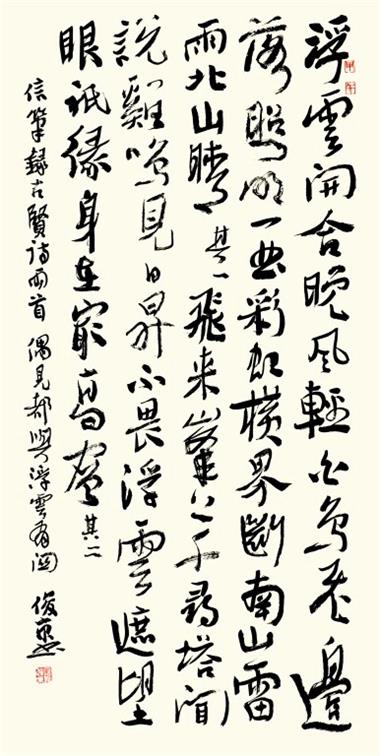 浮雲開合晚風輕白鳥飛邊
落照明一曲彩虹橫界斷南山雷
雨北山晴 其一 飛來峯上千尋塔聞
說雞鳴見日昇不畏浮雲遮望
眼祇緣身在最高層 其二
信筆錄古賢詩兩首 偶見都與浮雲有關 俊